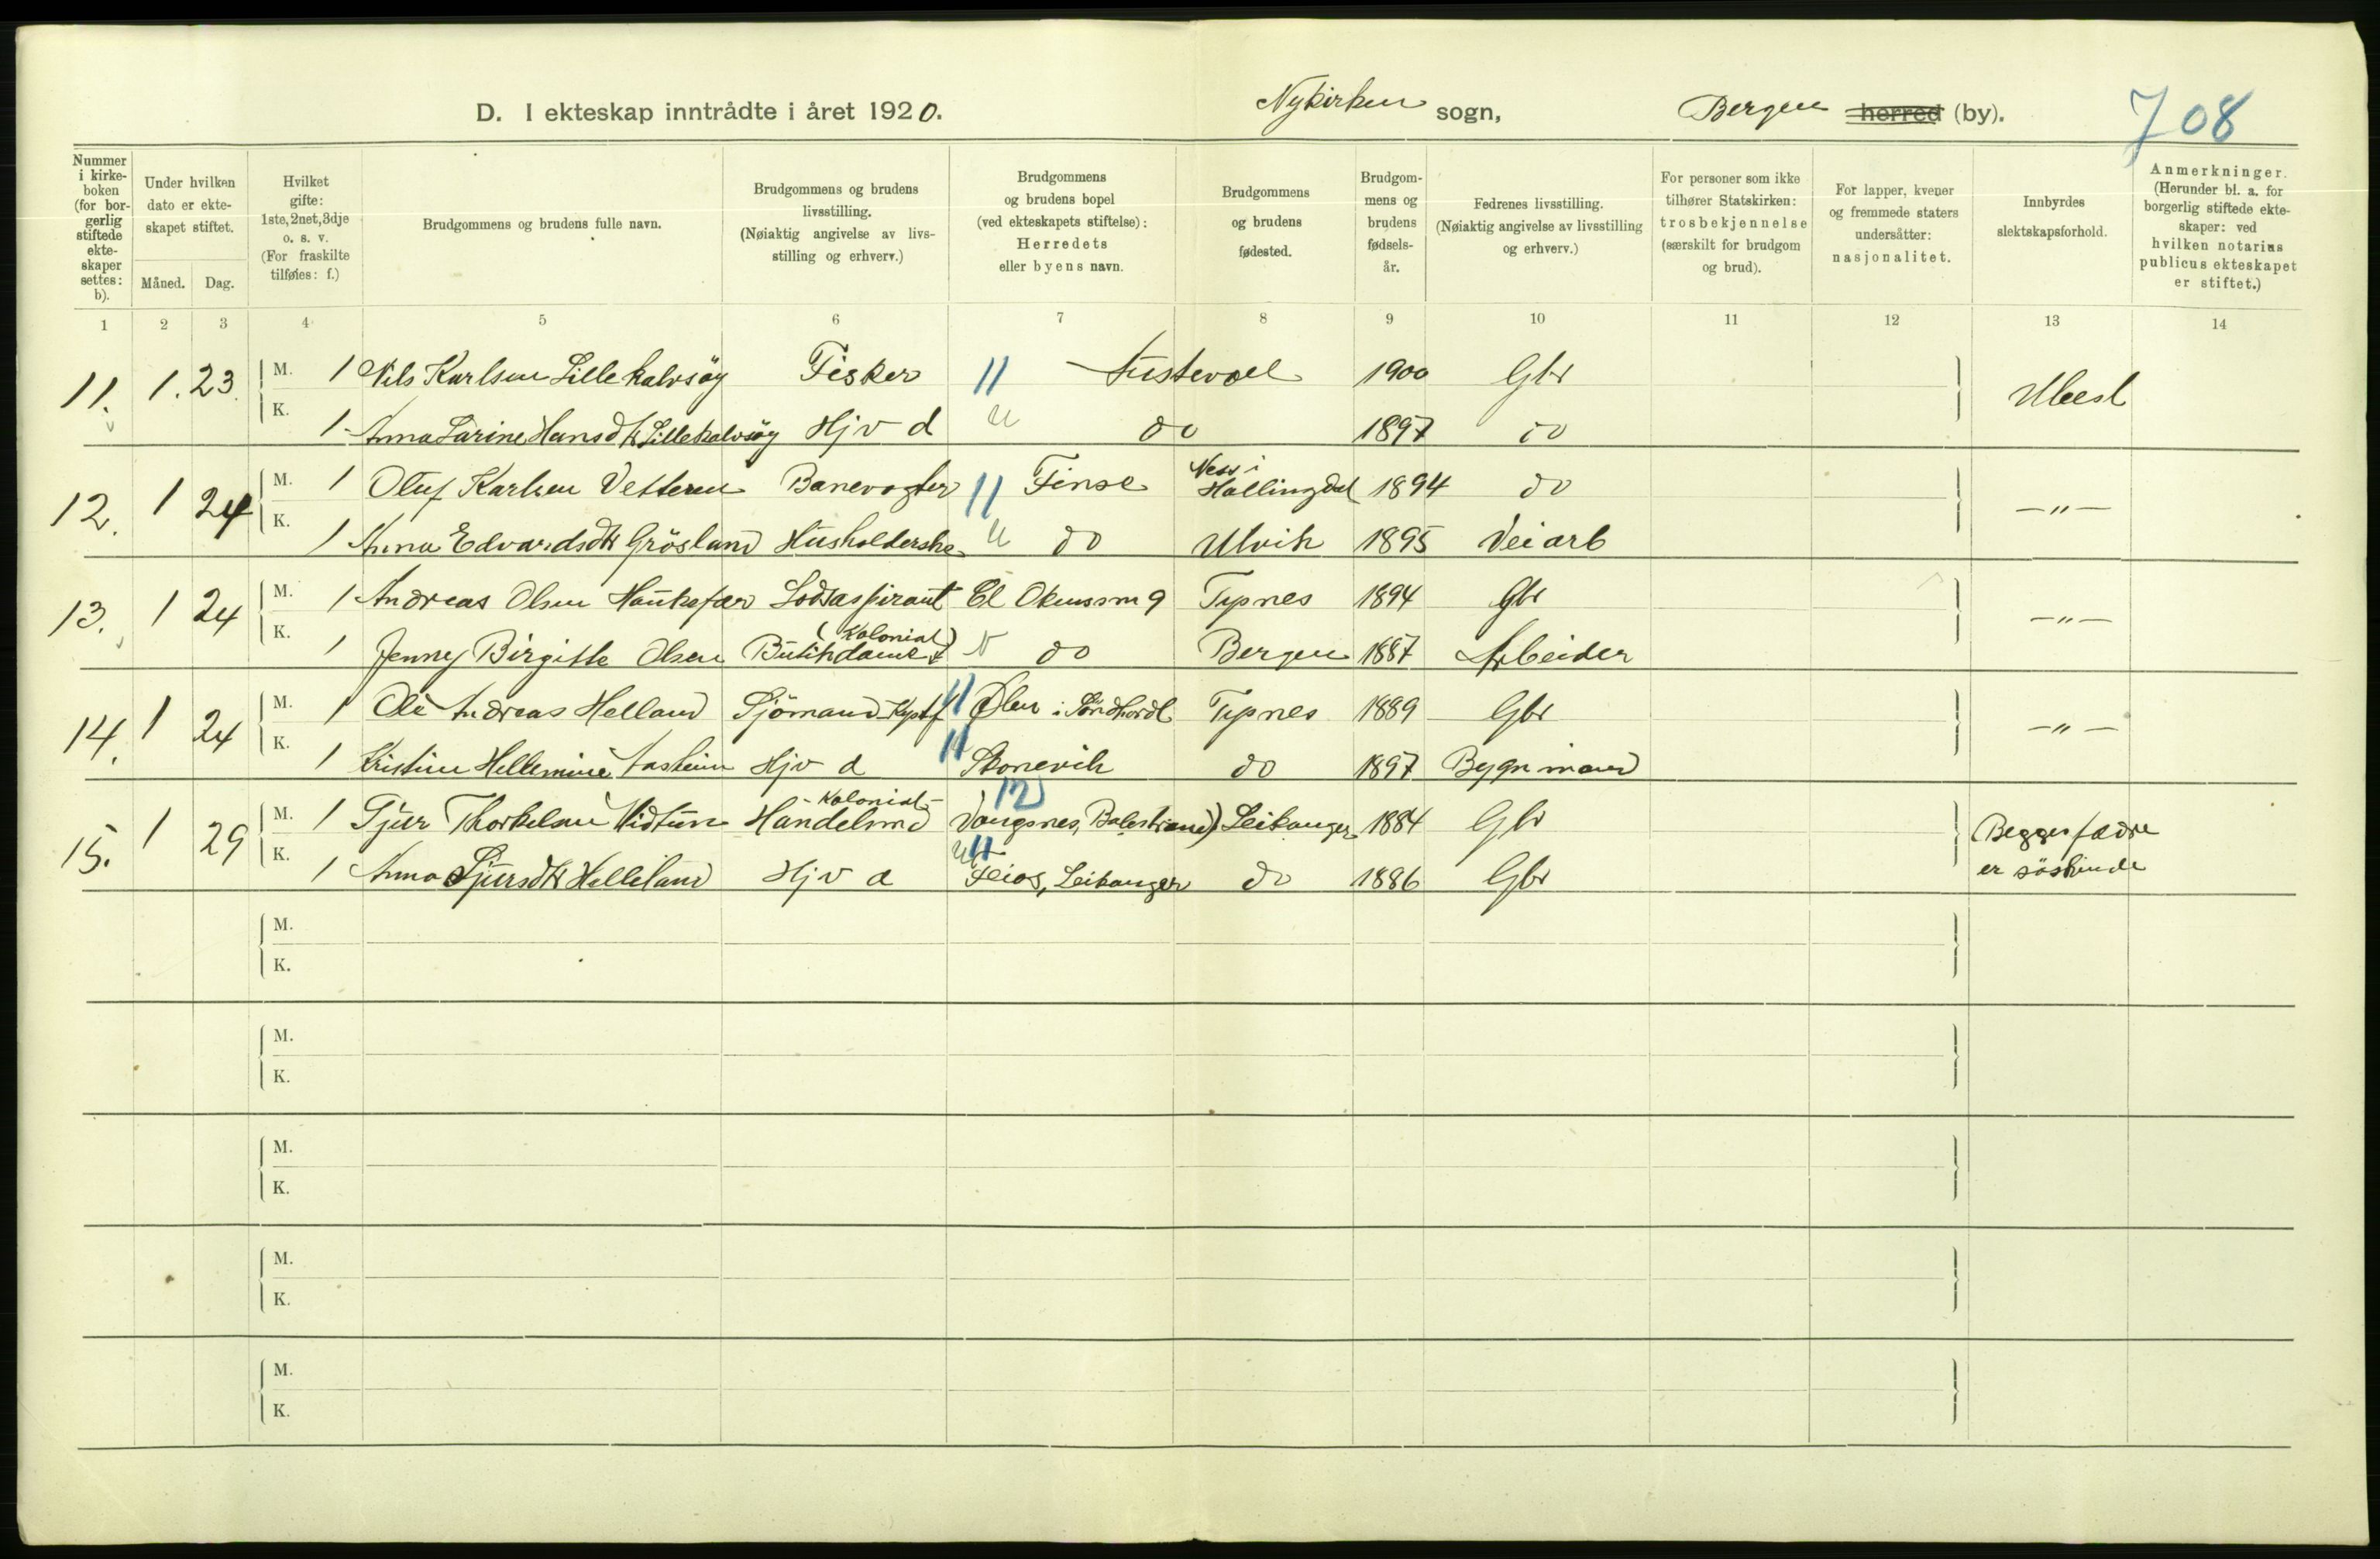 D. I ekteskap inntrådte i året 1920. Nykirken sogn, Bergen herred (by). 708
Nummer i kirkeboken (for borgerlig stiftede ekteskaper settes: b).
Under hvilken dato er ekteskapet stiftet.
Måned. Dag.
Hvilket gifte: 1ste, 2net, 3dje o. s. v. (For fraskilte tilføies: f.)
Brudgommens og brudens fulle navn.
Brudgommens og brudens livsstilling. (Nøiaktig angivelse av livsstilling og erhverv.)
Brudgommens og brudens bopel (ved ekteskapets stiftelse): Herredets eller byens navn.
Brudgommens og brudens fødested.
Brudgommens og brudens fødselsår.
Fedrenes livsstilling. (Nøiaktig angivelse av livsstilling og erhverv.)
For personer som ikke tilhører Statskirken: trosbekjennelse (særskilt for brudgom og brud).
For lapper, kvener og fremmede staters undersåtter: nasjonalitet.
Innbyrdes slektskapsforhold.
Anmerkninger. (Herunder bl. a. for borgerlig stiftede ekteskaper: ved hvilken notarius publicus ekteskapet er stiftet.)
1 2 3 4 5 6 7 8 9 10 11 12 13 14
11. 1. 23. M. 1 Nils Karlsen Lillekalvsöy Fisker 11 Austevoll 1900 Gbr Ubesl
K. 1 Anna Larine Hansdtr Lillekalvsöy Hjv d do 1897 do
12. 1 24 M. 1 Oluf Karlsen Vetteren Banevogter 11 Finse Ness i Hallingdal 1894 do —"—
K. 1 Anna Edvardsdtr Grösland Husholderske do Ulvik 1895 Veiarb
13. 1 24 M. 1 Andreas Olsen Haukefær Lodsaspirant Cl 9 Tysnes 1894 Gbr —"—
K. 1 Jenny Birgitte Olsen Butikdame (Kolonial) do Bergen 1887 Arbeider
14. 1 24 M. 1 Ole Andreas Helland Sjömand Kystf 11 Ølen i Söndhordl Tysnes 1889 Gbr —"—
K. 1 Kristine Hellemine Aasheim Hjv d 11 Skonevik do 1897 Bygn mand
15. 1 29 M. 1 Sjur Thorkelsen Midtun Handelsmd -Kolonial- 12 Vangsnes, Balestrand) Leikanger 1884 Gbr Begges fædre
K. 1 Anna Sjursdtr Helleland Hjv d 11 Feios, Leikanger do 1886 Gbr er söskinde
M.
K.
M.
K.
M.
K.
M.
K.
M.
K.